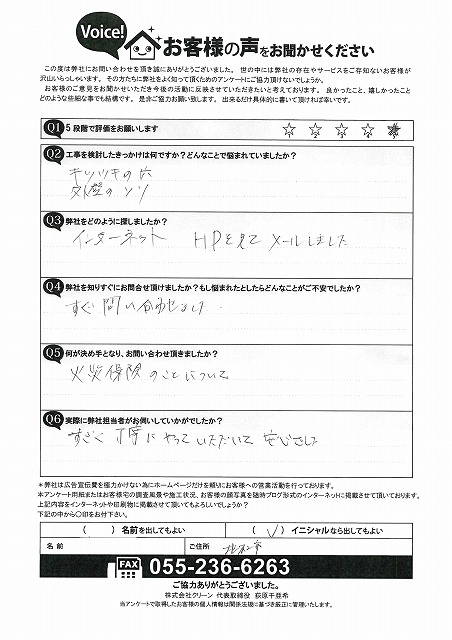 Voice!
お客様の声をお聞かせください
この度は弊社にお問い合わせを頂き誠にありがとうございました。世の中には弊社の存在やサービスをご存知ないお客様が
沢山いらっしゃいます。その方たちに弊社をよく知って頂くためのアンケートにご協力頂けないでしょうか。
お客様のご意見をお聞かせいただき今後の活動に反映させていただきたいと考えております。良かったこと、嬉しかったこと
どのような些細な事でも結構です。是非ご協力お願い致します。出来るだけ具体的に書いて頂ければ幸いです。
Q1 5段階で評価をお願いします
☆ ☆ ☆ ☆ ★
1 2 3 4
Q2 工事を検討したきっかけは何ですか?どんなことで悩まれていましたか?
キツツキの穴
外壁のソリ
Q3 弊社をどのように探しましたか?
インターネット HPを見て メールしました
Q4 弊社を知りすぐにお問合せ頂けましたか?もし悩まれたとしたらどんなことがご不安でしたか?
すぐ問い合わせました
Q5 何が決め手となり、お問い合わせ頂きましたか?
火災保険のことについて
Q6 実際に弊社担当者がお伺いしていかがでしたか?
すごく丁寧にやっていただいて安心でした
*弊社は広告宣伝費を極力かけない為にホームページだけを頼りにお客様への営業活動を行っております。
*アンケート用紙またはお客様宅の調査風景や施工状況、お客様の顔写真を随時ブログ形式のインターネットに掲載させて頂いております。
上記内容をインターネットや印刷物に掲載させて頂いてもよろしいでしょうか?
下記の中から〇印をお付下さい。
( ) 名前を出してもよい ( ✓ ) イニシャルなら出してもよい
名 前 ご住所 北杜市
FAX 055-236-6263
ご協力ありがとうございました。
株式会社クリーン 代表取締役 萩原干亜希
当アンケートで取得したお客様の個人情報は関係法規に基づき厳正に管理いたします。